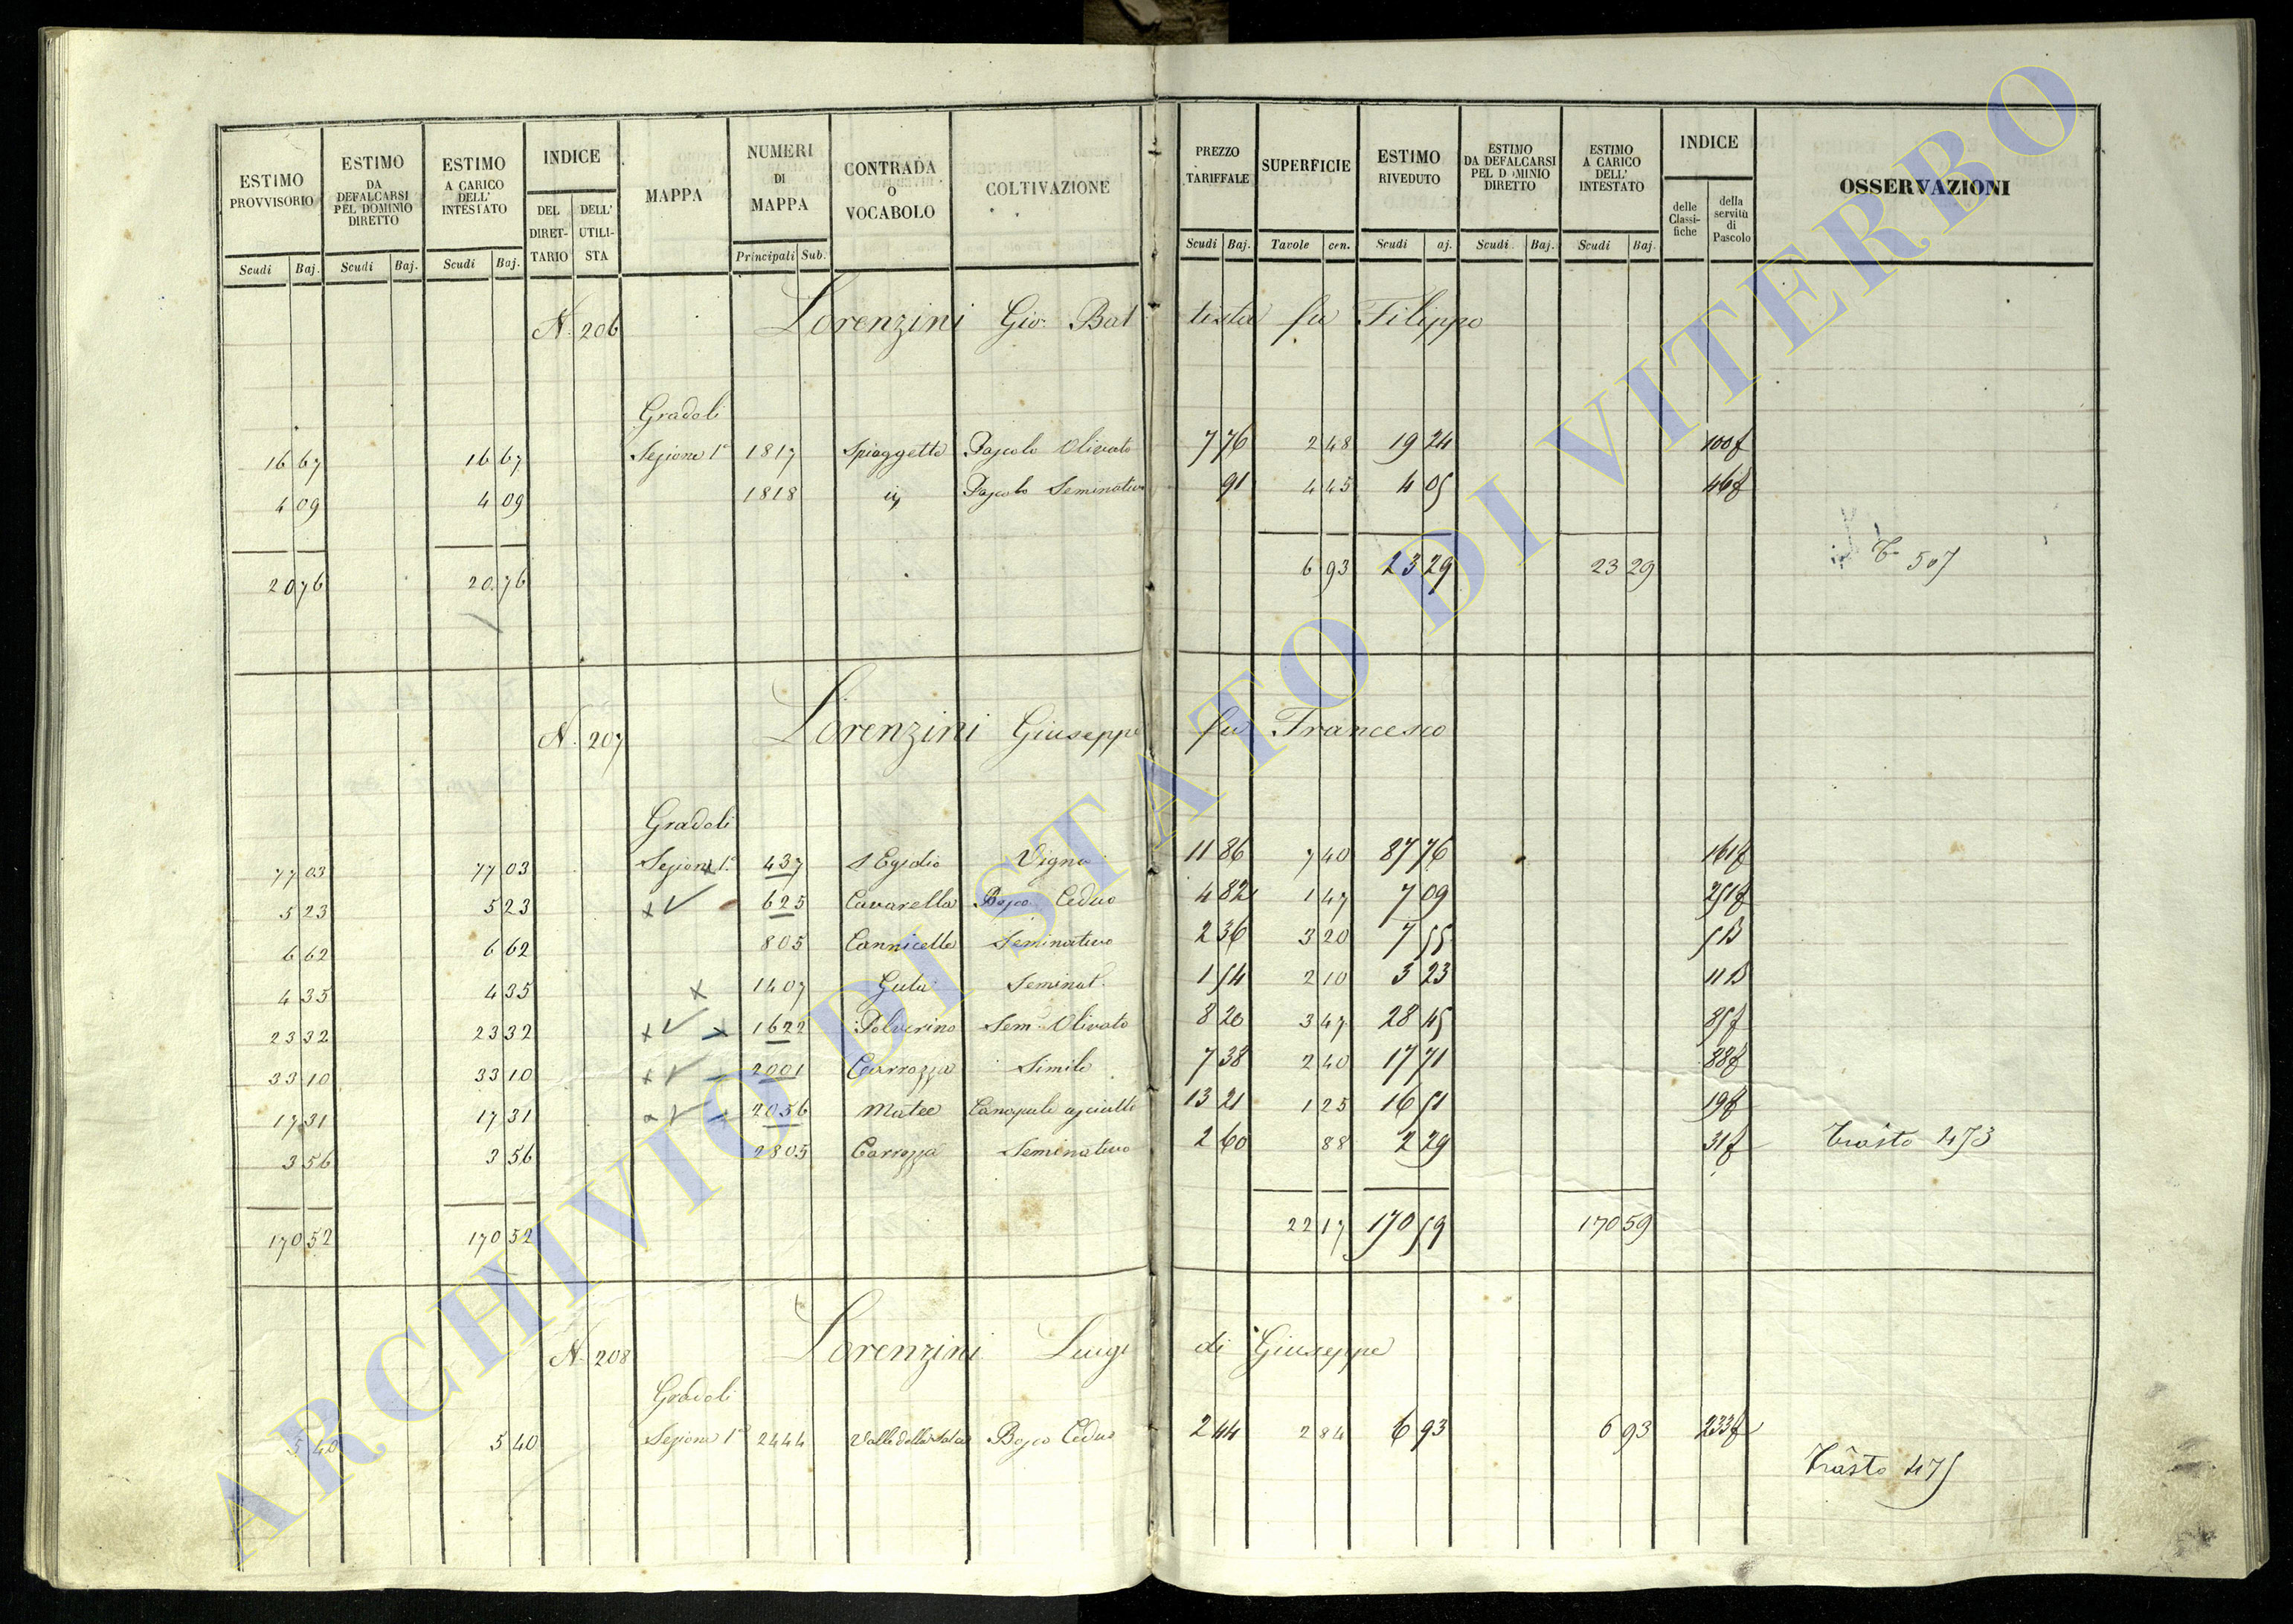 ESTIMO PROVVISORIO | ESTIMO DA DEFALCARSI PEL DOMINIO DIRETTO | ESTIMO A CARICO DELL' INTESTATO | INDICE DEL DIRETTARIO | DELL' UTILISTA | MAPPA | NUMERI DI MAPPA | CONTRADA O VOCABOLO | COLTIVAZIONE | PREZZO TARIFFALE | SUPERFICIE | ESTIMO RIVEDUTO | ESTIMO DA DEFALCARSI PEL DOMINIO DIRETTO | ESTIMO A CARICO DELL' INTESTATO | INDICE delle Classifiche | della servitù di Pascolo | OSSERVAZIONI
Scudi | Baj. | Scudi | Baj. | Scudi | Baj. | Principali | Sub. | Scudi | Baj. | Tavole | cen. | Scudi | aj. | Scudi | Baj. | Scudi | Baj.
N. 206 Lorenzini Gio: Battista fu Filippo
Gradoli
16 67 | 16 67 | Sezione 1a | 1817 | Spiaggetto | Pascolo Olivato | 7 76 | 2 48 | 19 24 | 100f
4 09 | 4 09 | 1818 | Pascolo Seminativo | 91 | 4 45 | 4 05 | 46f
20 76 | 20 76 | 6 93 | 23 29 | 23 29 | 507
N. 207 Lorenzini Giuseppe fu Francesco
Gradoli
77 03 | 77 03 | Sezione 1a | 437 | S Egidio | Vigna | 11 86 | 7 40 | 87 76 | 161f
5 23 | 5 23 | 625 | Cavarella | Bosco Ceduo | 4 82 | 1 47 | 7 09 | 251f
6 62 | 6 62 | 805 | Cannicelle | Seminativo | 2 36 | 3 20 | 7 55
4 35 | 4 35 | x | 1407 | Gula | Seminat. | 1 54 | 2 10 | 3 23
23 32 | 23 32 | 1622 | Polverino | Sem. Olivato | 8 20 | 3 47 | 28 45 | 85f
33 10 | 33 10 | 2001 | Carrozza | Simile | 7 38 | 2 40 | 17 71 | 88f
17 31 | 17 31 | 2056 | Matee | Canapule asciutto | 13 21 | 1 25 | 16 51 | 19f
3 56 | 3 56 | 2805 | Carrozza | Seminativo | 2 60 | 88 | 2 29 | 31f | Trasto 473
170 52 | 170 52 | 22 17 | 170 59 | 170 59
N. 208 Lorenzini Luigi di Giuseppe
Gradoli
5 40 | 5 40 | Sezione 1a | 2444 | Valle della | Bosco Ceduo | 2 44 | 2 84 | 6 93 | 6 93 | 233f
Trasto 475
ARCHIVIO DI STATO DI VITERBO